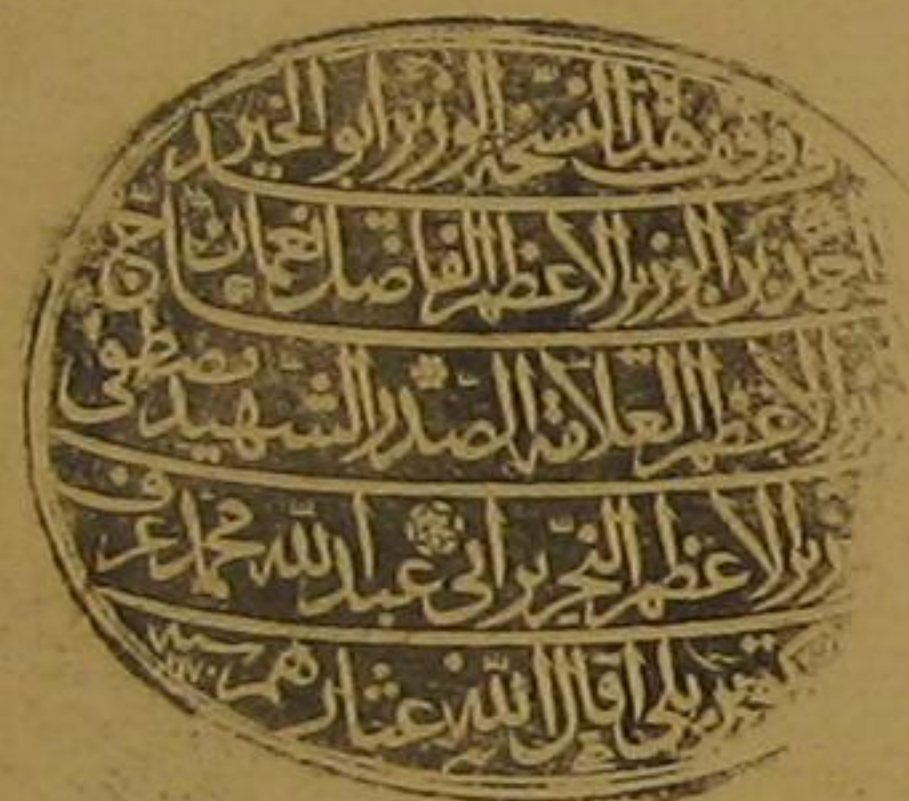 وقف هذا النسخة الوزير ابو الخير
احمد بن الوزير الاعظم الفاضل نعمان بن
الاعظم العلامة الصدر الشهيد مصطفى
الاعظم النحرير ابي عبد الله محمد عرف
كوپريلي اقال الله عثارهم سنه